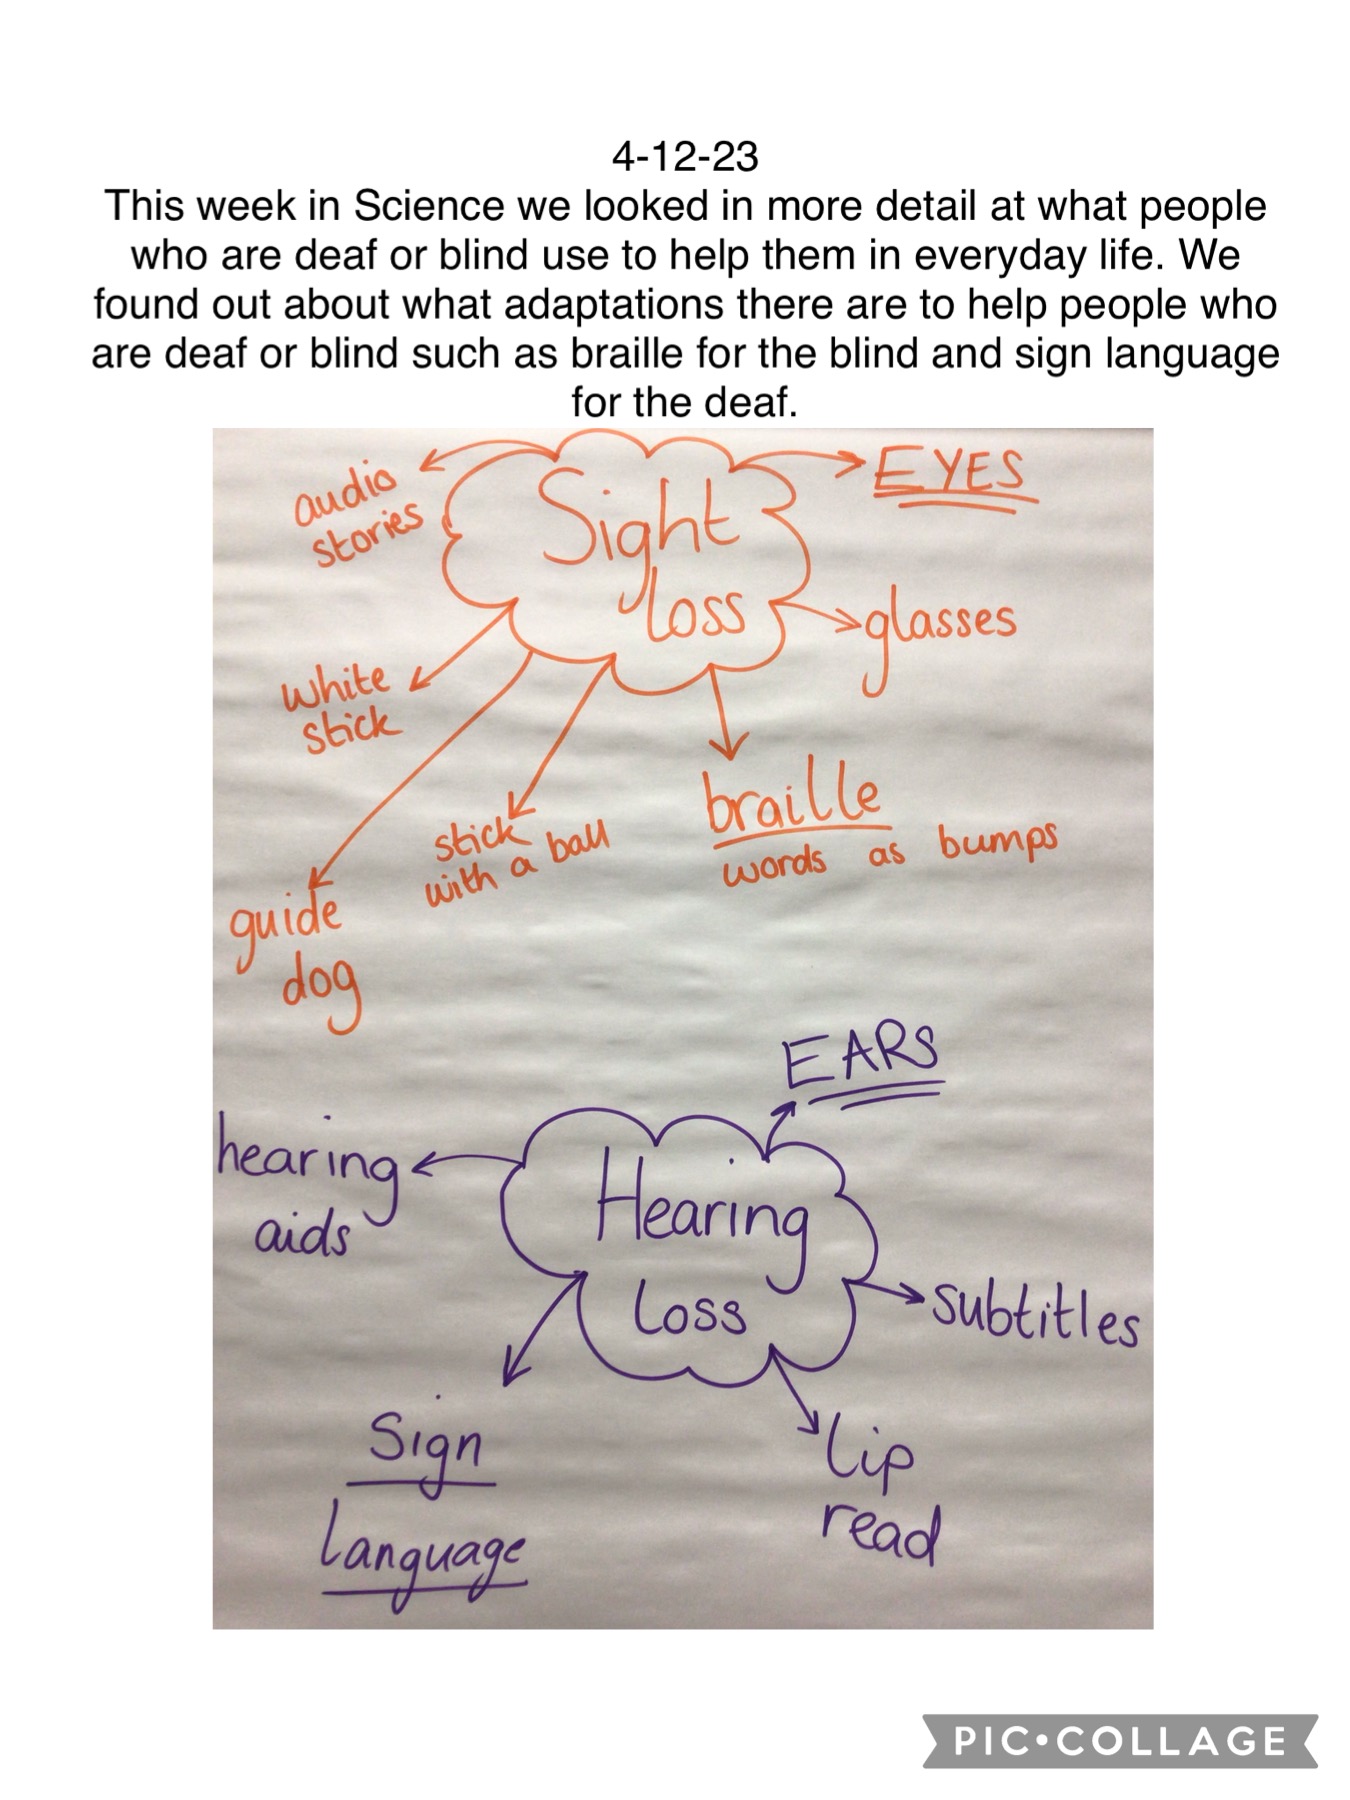 4-12-23
This week in Science we looked in more detail at what people
who are deaf or blind use to help them in everyday life. We
found out about what adaptations there are to help people who
are deaf or blind such as braille for the blind and sign language
for the deaf.
audio
stories
Sight
loss
EYES
glasses
white
stick
guide
dog
stick
with a ball
braille
words as bumps
EARS
hearing
aids
Hearing
Loss
subtitles
Sign
Language
Lip
read
PIC•COLLAGE